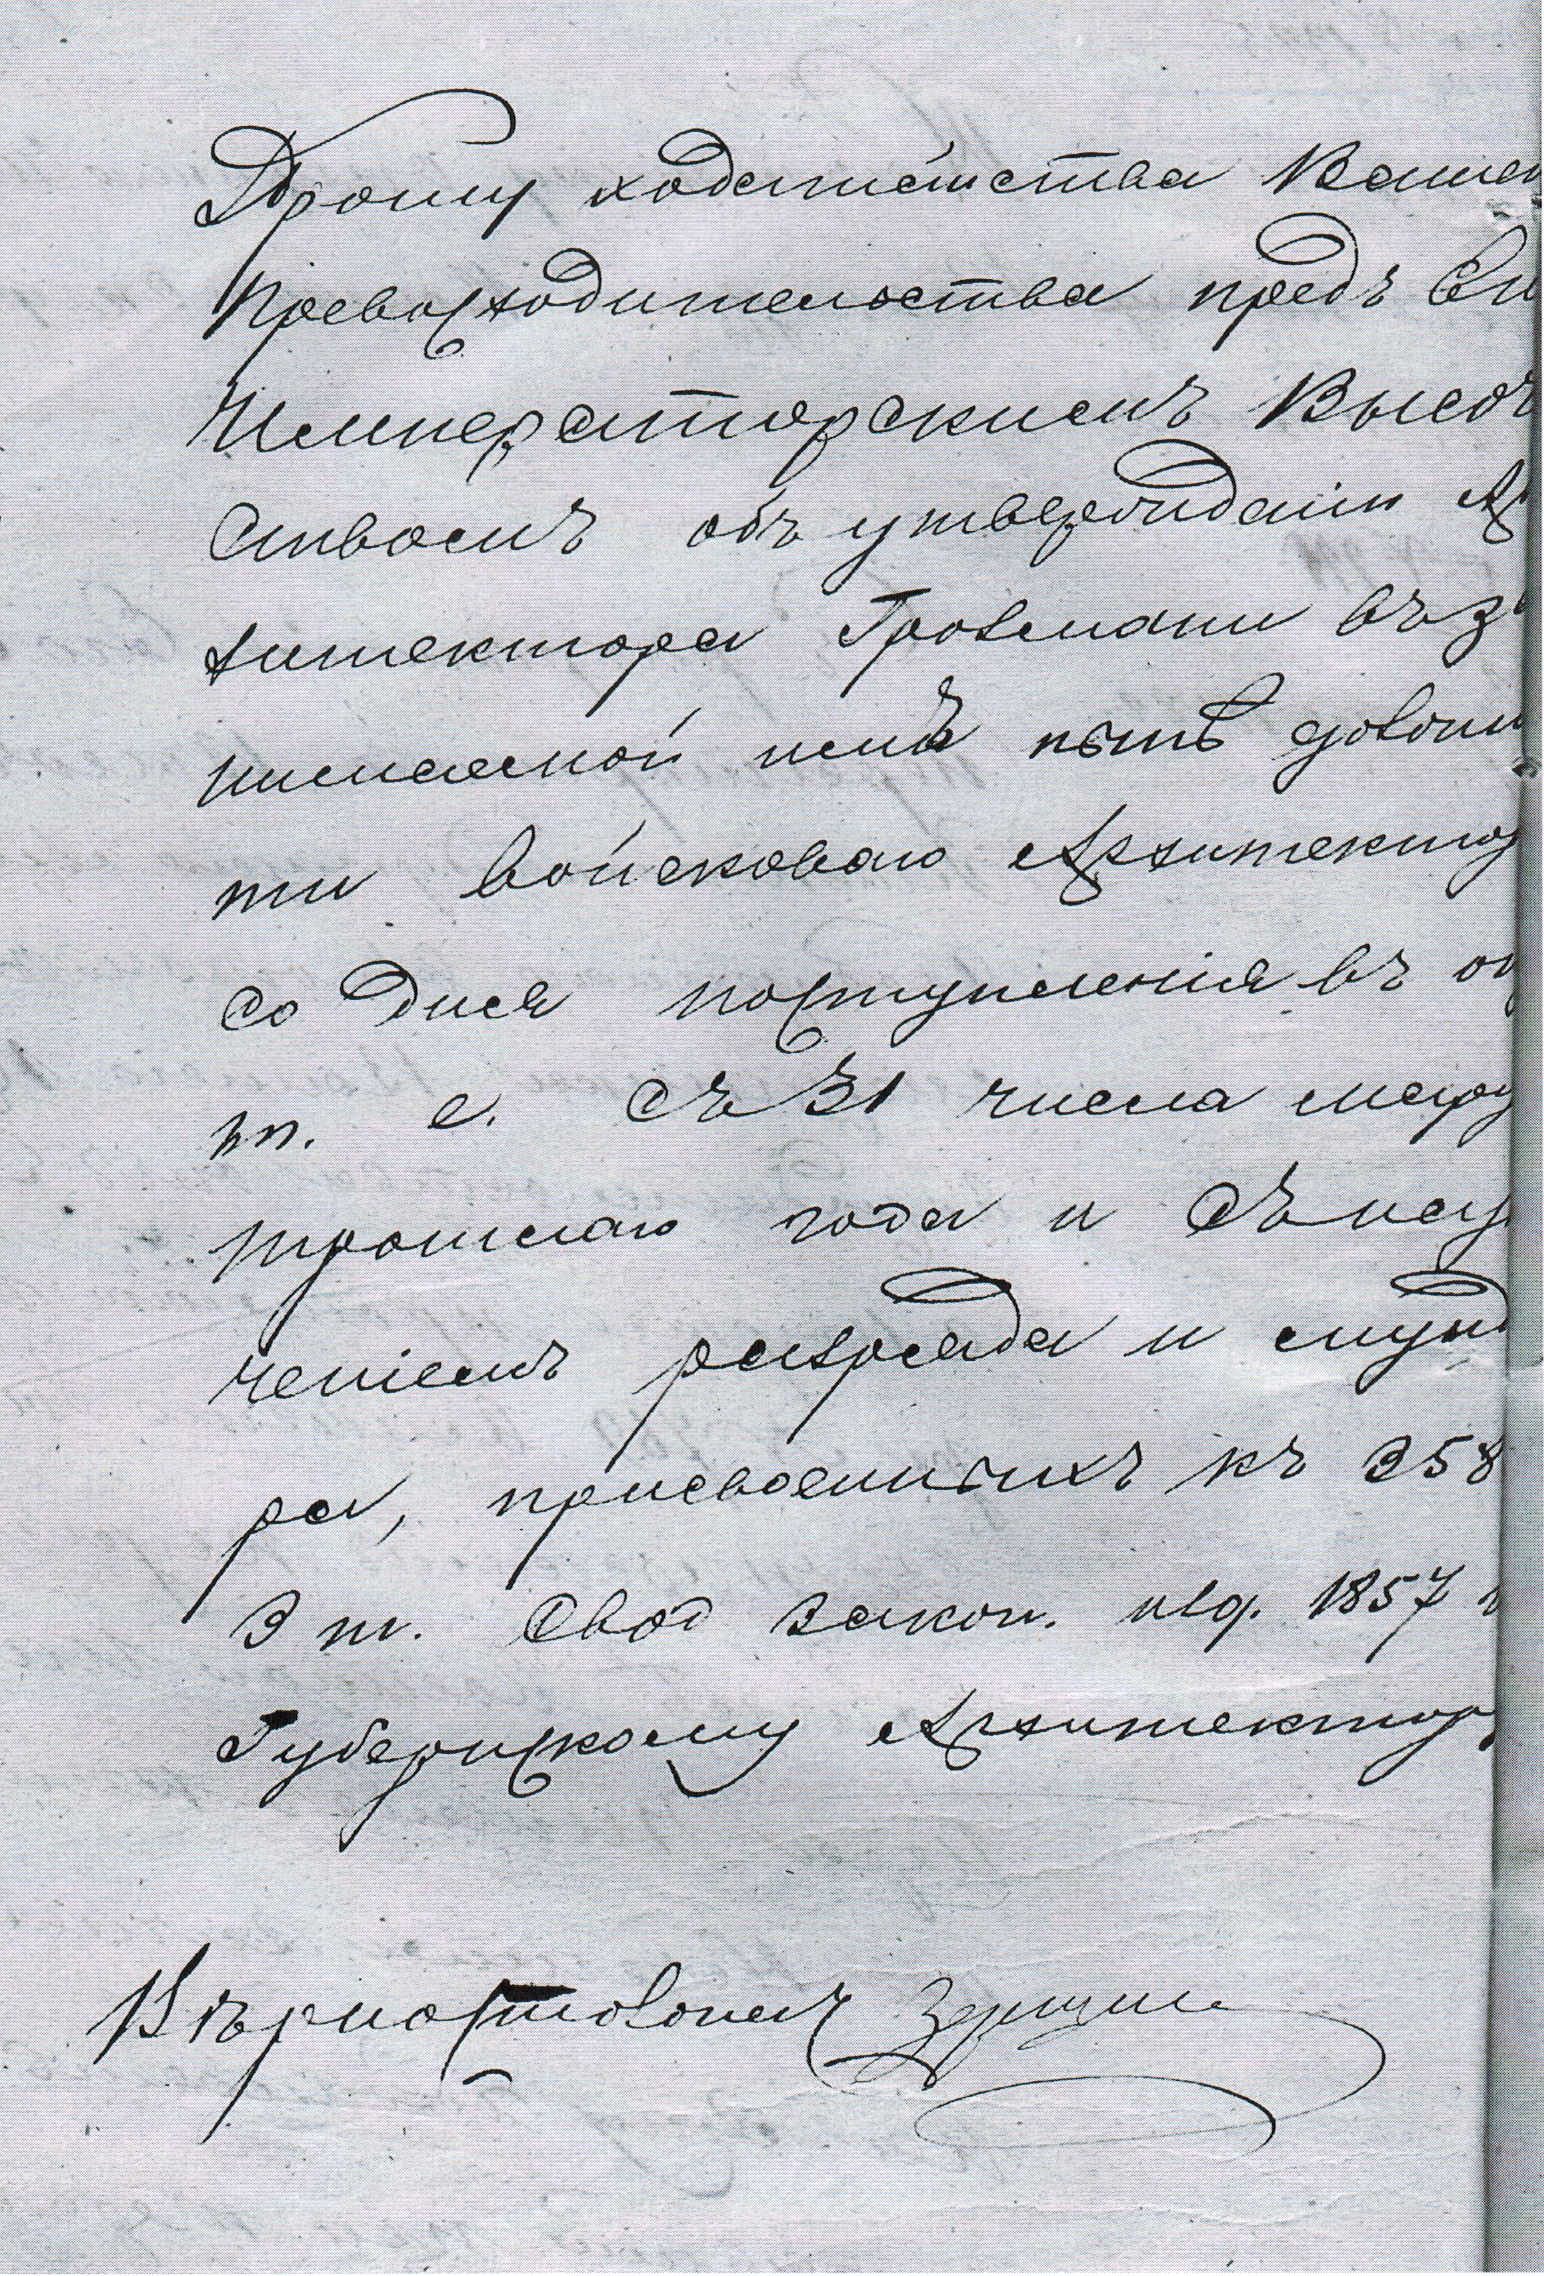 Прошу ходатайства Ваше
Превосходительства предъ Ея
Императорскимъ Высоче
ствомъ объ утвержденіи Ар
хитектора Гроземани въ з
нимаемой имъ нынѣ должно
ти Войсковаго Архитектор
со дня поступленія въ он
т. е. съ 31 числа
прошлаго года и съ
ченіемъ разряда и мунд
ра, присвоенныхъ къ 358
3 т. Свод закон. изд. 1857 г
Губернскому Архитектор